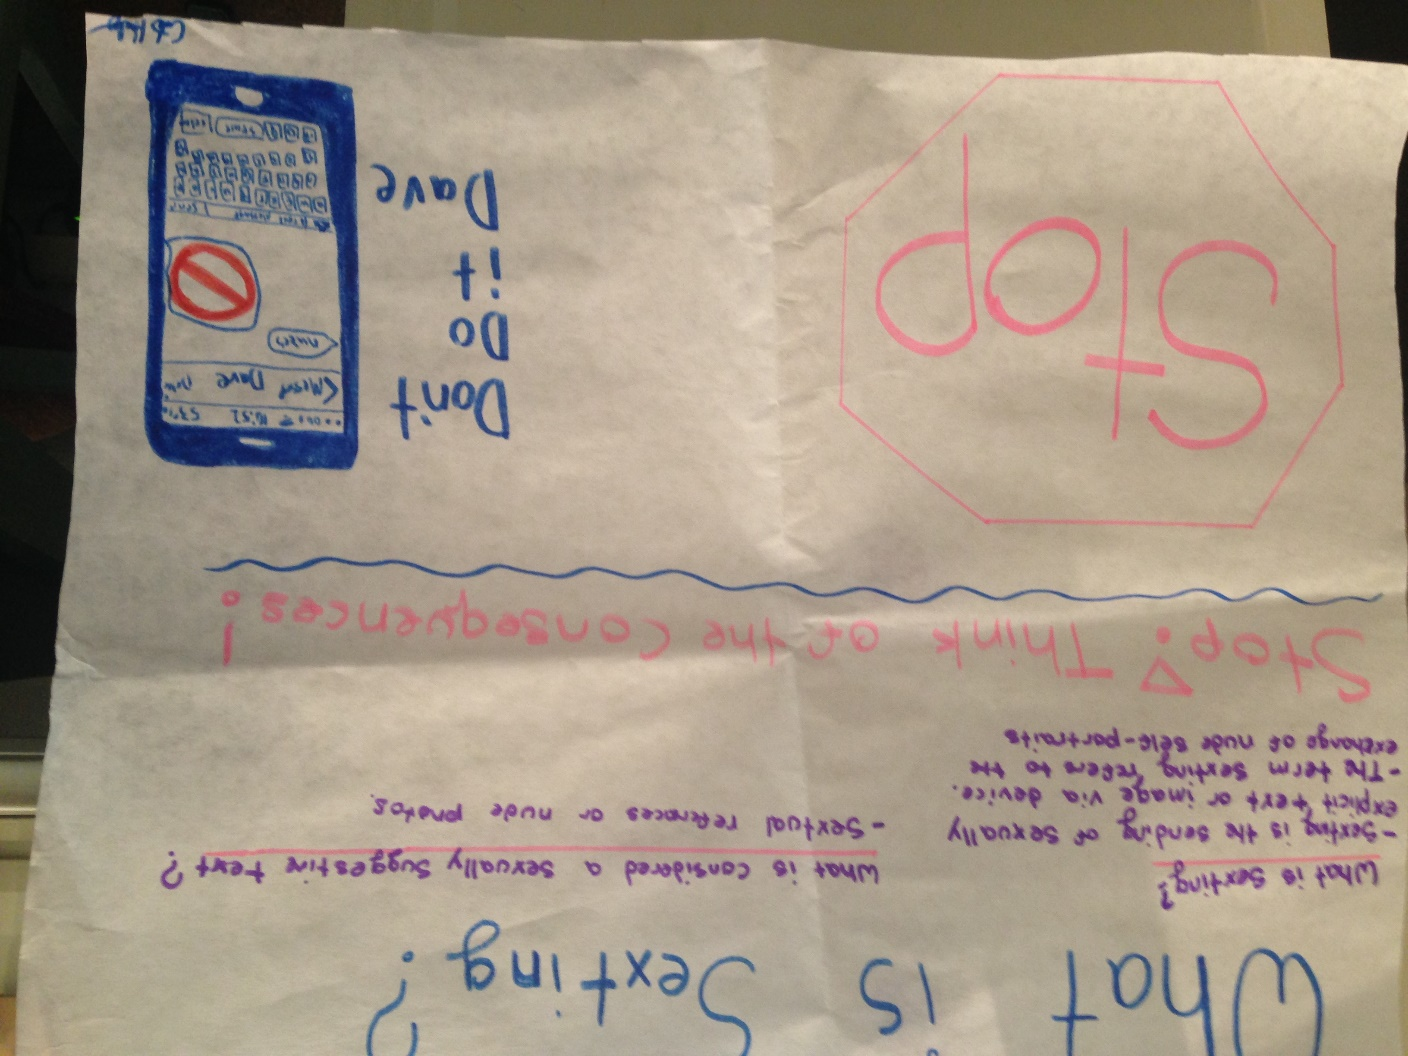 What is Sexting?
What is Sexting?
- Sexting is the sending of sexually
explicit text or image via device.
- The term sexting refers to the
exchange of nude self-portraits
What is considered a sexually suggestive text?
- Sextual references or nude photos.
Stop! Think of the Consequences!
Stop
Don't
Do
it
Dave
16:52 53%
Dave
nudes
Send